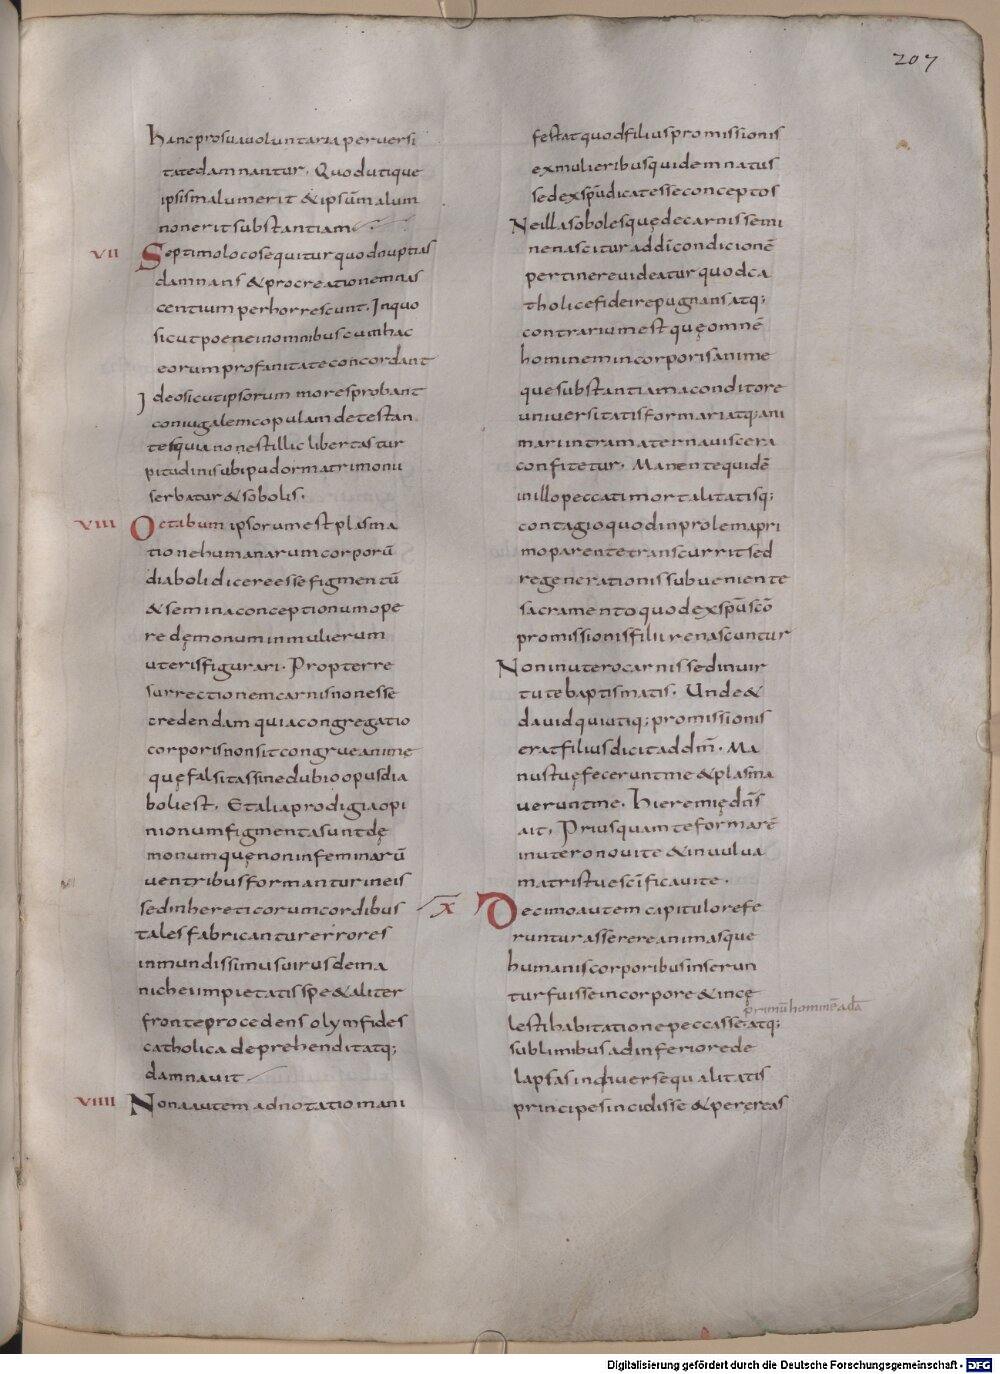 207
hanc pro sua voluntaria perversi
tate damnantur. Quod utique
ipsis malum erit & ipsū malum
non erit substantiam
VII Septimo loco sequitur quod nuptias
damnans & procreationem nas
centium perhorrescunt. In quo
sicut poene in omnibus cum hac
eorum profanitate concordant
Ideo sicut ipsorum mores probant
coniugalem copulam detestan
tes quia non est illic libertas tur
pitudinis ubi pudor matrimonii
serbatur & sobolis.
VIII Octabum ipsorum est plasma
tione humanarum corporū
diaboli dicere esse figmentū
& semina conceptionum ope
re demonum in mulierum
uteris figurari. Propter re
surrectionem carnis non esse
credendam quia congregatio
corporis non sit congrue animę
quę falsitas sine dubio opus dia
boli est. Et alia prodigia opi
nionum figmenta sunt dę
monum quę non in feminarū
ventribus formantur in eis
sed in hereticorum cordibus
tales fabricantur errores
inmundissimus virus de ma
nichei impietatis spe & aliter
fronte procedens olymfides
catholica deprehendit atq;
damnavit
VIIII Nona autem adnotatio mani
festat quod filius promissionis
ex mulieribus quidem natus
sed ex spū dicat esse conceptos
Ne illa soboles quę de carnis semi
ne nascitur ad dī condicionē
pertinere videatur quod ca
tholice fidei repugnans atq;
contrarium est quę omnē
hominem in corporis anime
que substantiam a conditore
universitatis formari atq; ani
mari intra materna viscera
confitetur. Manente quidē
in illo peccati mortalitatisq;
contagio quod in prolem a pri
mo parente transcurrit sed
regenerationis subveniente
sacramento quod ex spū scō
promissionis filii renascuntur
Non in utero carnis sed in vir
tute baptismatis. Unde &
david qui utiq; promissionis
erat filius dicit ad dm̄. Ma
nus tuę fecerunt me & plasma
verunt me. Hieremię dn̄s
ait. Priusquam te formarē
in utero novi te & in vulva
matris tuę scīficavi te.
X Decimo autem capitulo refe
runtur asserere animas que
humanis corporibus inserun
tur fuisse in corpore & in cę
primū hominē adā
lesti habitatione peccasse atq;
sublimibus ad inferiore de
lapsas in diverse qualitatis
principes incidisse & per ęrias
Digitalisierung gefördert durch die Deutsche Forschungsgemeinschaft - DFG